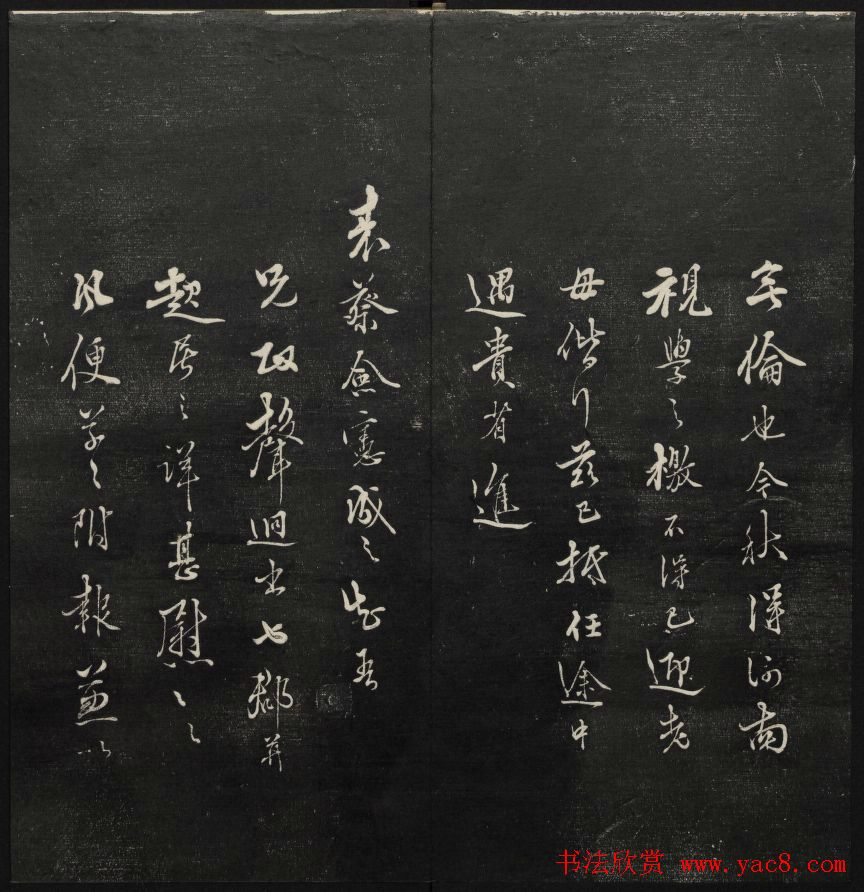 無倫也今秋得河南
視學之檄不得已迎老
母偕行茲已抵任途中
遇貴省進
表蔡僉憲成之知吾
兄政聲迥出七郡并
起居之詳甚慰〻之
風便草〻附報兼以
书法欣赏 www.yac8.com